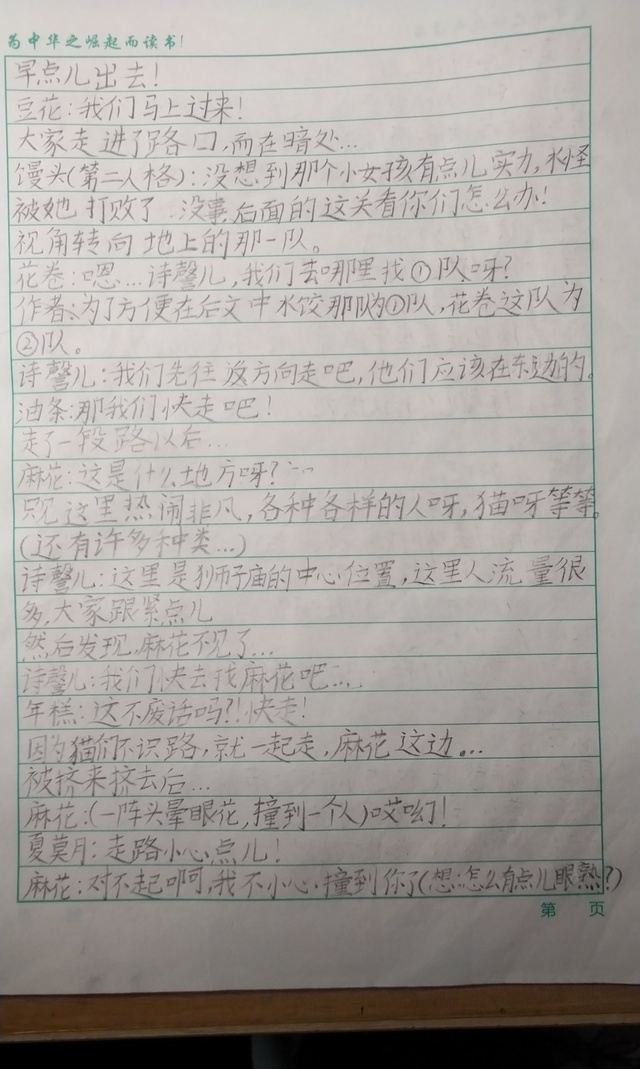 为中华之崛起而读书!
早点儿出去!
豆花:我们马上过来!
大家走进了路口,而在暗处...
馒头(第二人格):没想到那个小女孩有点儿实力,水怪
被她打败了 没事,后面的这关看你们怎么办!
视角转向地上的那一队。
花卷:嗯...诗馨儿,我们去哪里找①队呀?
作者:为了方便在后文中水饺那队为①队,花卷这队为
②队。
诗馨儿:我们先往 方向走吧,他们应该在东边的。
油条:那我们快走吧!
走了一段路以后...
麻花:这是什么地方呀?...
只见这里热闹非凡,各种各样的人呀,猫呀等等。
(还有许多种类...)
诗馨儿:这里是狮子庙的中心位置,这里人流量很
多,大家跟紧点儿
然后发现,麻花不见了...
诗馨儿:我们快去找麻花吧...
年糕:这不废话吗?!快走!
因为猫们不识路,就一起走,麻花这边...
被挤来挤去后...
麻花:(一阵头晕眼花,撞到一个人)哎呦!
夏莫月:走路小心点儿!
麻花:对不起啊,我不小心撞到你了(想:怎么有点儿眼熟?)
第 页